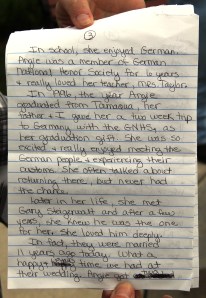 3
In school, she enjoyed German.
Angie was a member of German
National Honor Society for 4 years
& really loved her teacher, Mrs. Taylor.
In 1996, the year Angie
graduated from Tamaqua, her
father & I gave her a two week trip
to Germany with the GNHS, as
her graduation gift. She was so
excited & really enjoyed meeting the
German people & experiencing their
customs. She often talked about
returning there, but never had
the chance.
Later in her life, she met
Gary Stegmuth and after a few
years, she knew he was the one
for her. She loved him deeply.
In fact, they were married
11 years ago today. What a
happy time we had at
their wedding. Angie got